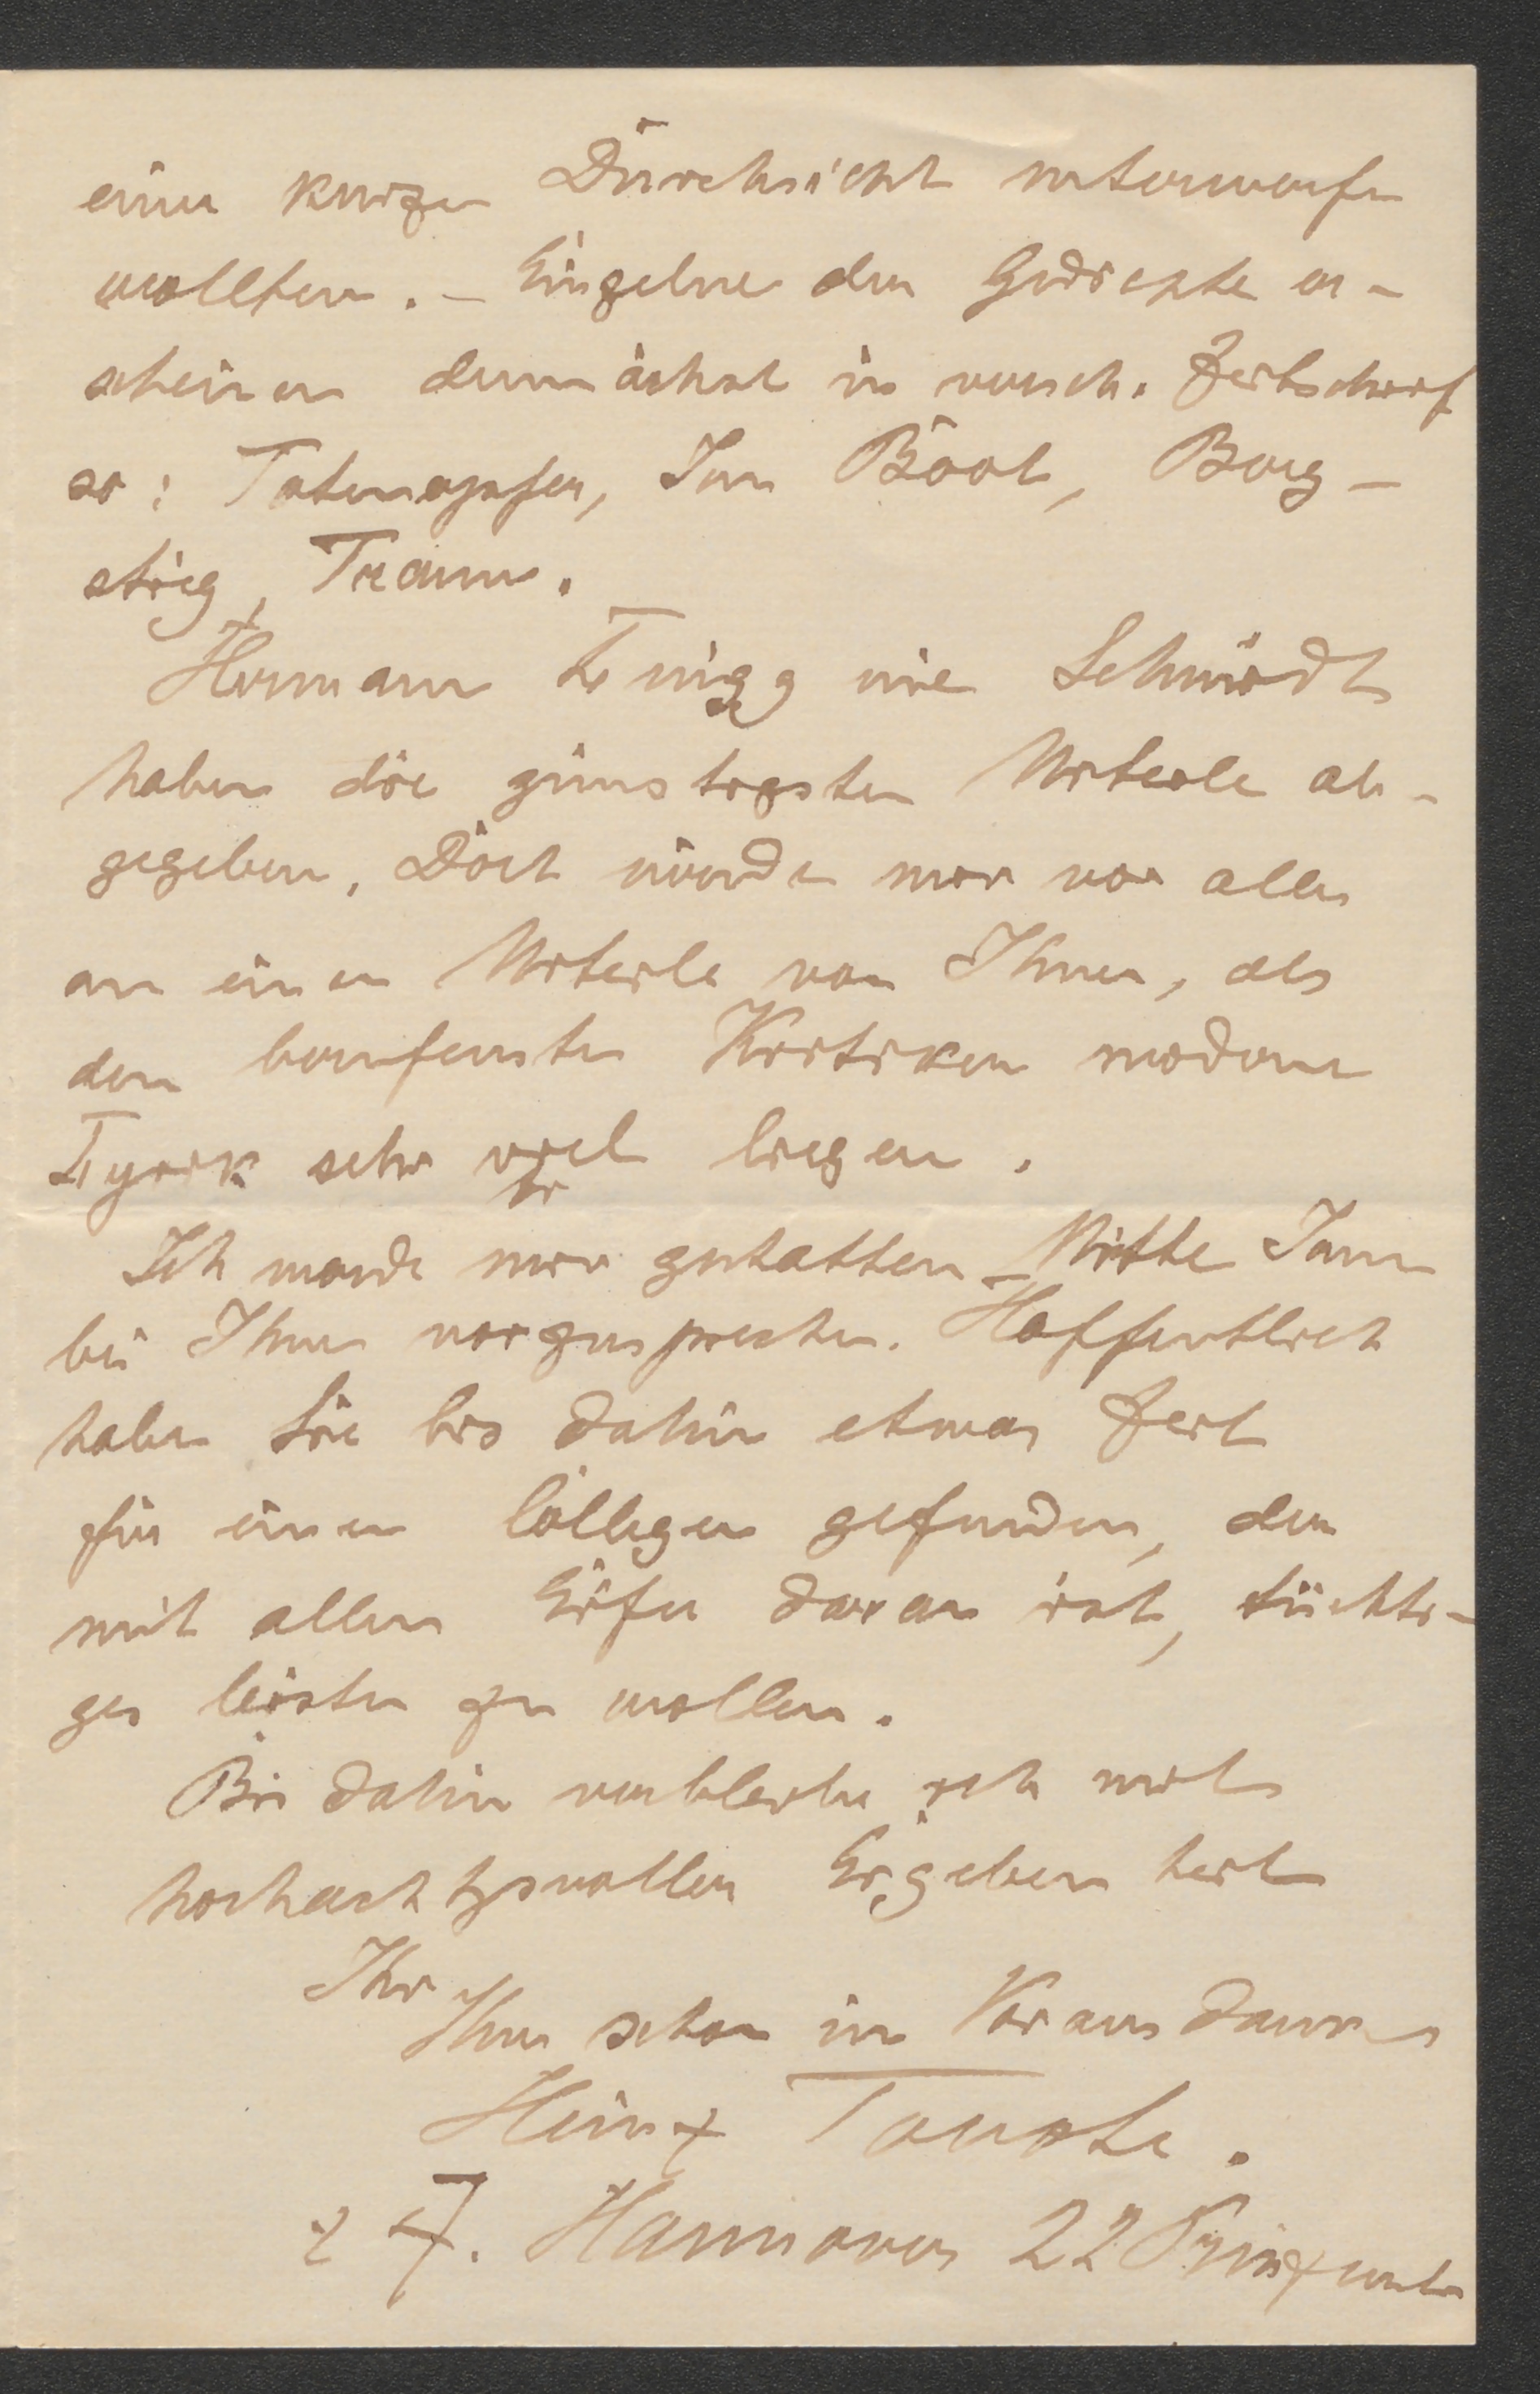 einer kurzen Durchsicht unterwerfen
wollten. – Einzelne der Gedichte er-
scheinen demnächst in versch. Zeitschrif
so: Totenopfer, Im Boot, Berg-
stieg, Traum.
Hermann Lingg wie Schmidt
haben die günstigsten Urteile ab-
gegeben. Doch würde mir vor allem
an einem Urteile von Ihnen, als
dem berufensten Kritiker moderner
Lyrik sehr viel liegen.
Ich werde mir gestatten Mitte Juni
bei Ihnen vorzusprechen. Hoffentlich
haben Sie bis dahin etwas Zeit
für einen gefunden, der
mit allem Eifer daran ist, tüchti-
ges leisten zu wollen.
Bis dahin verbleibe ich mit
hochachtgsvoller Ergebenheit
Ihr
Ihnen schon im Voraus dankender
Heinz Tovote.
z Z. Hannover 22